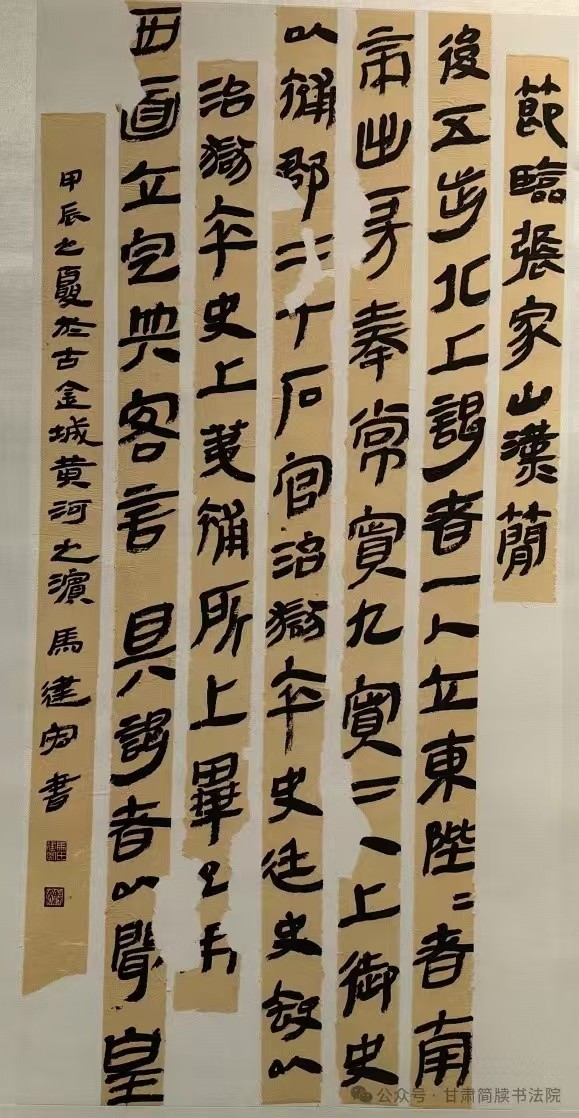 節臨張家山漢簡
後五步北上謁者一人立東陛=者南
帝出房奉常賓九賓二人上御史
以補郡二千石官治獄卒史廷史缺以
治獄卒史上第補所上畢已
西面立定典客言具謁者以聞皇
甲辰之夏於古金城黃河之濱馬建書
公众号·甘肃简牍书法院